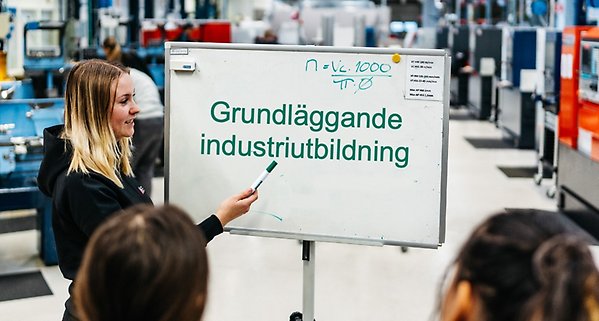 n = Vc.1000
π.Ø
Grundläggande
industriutbildning